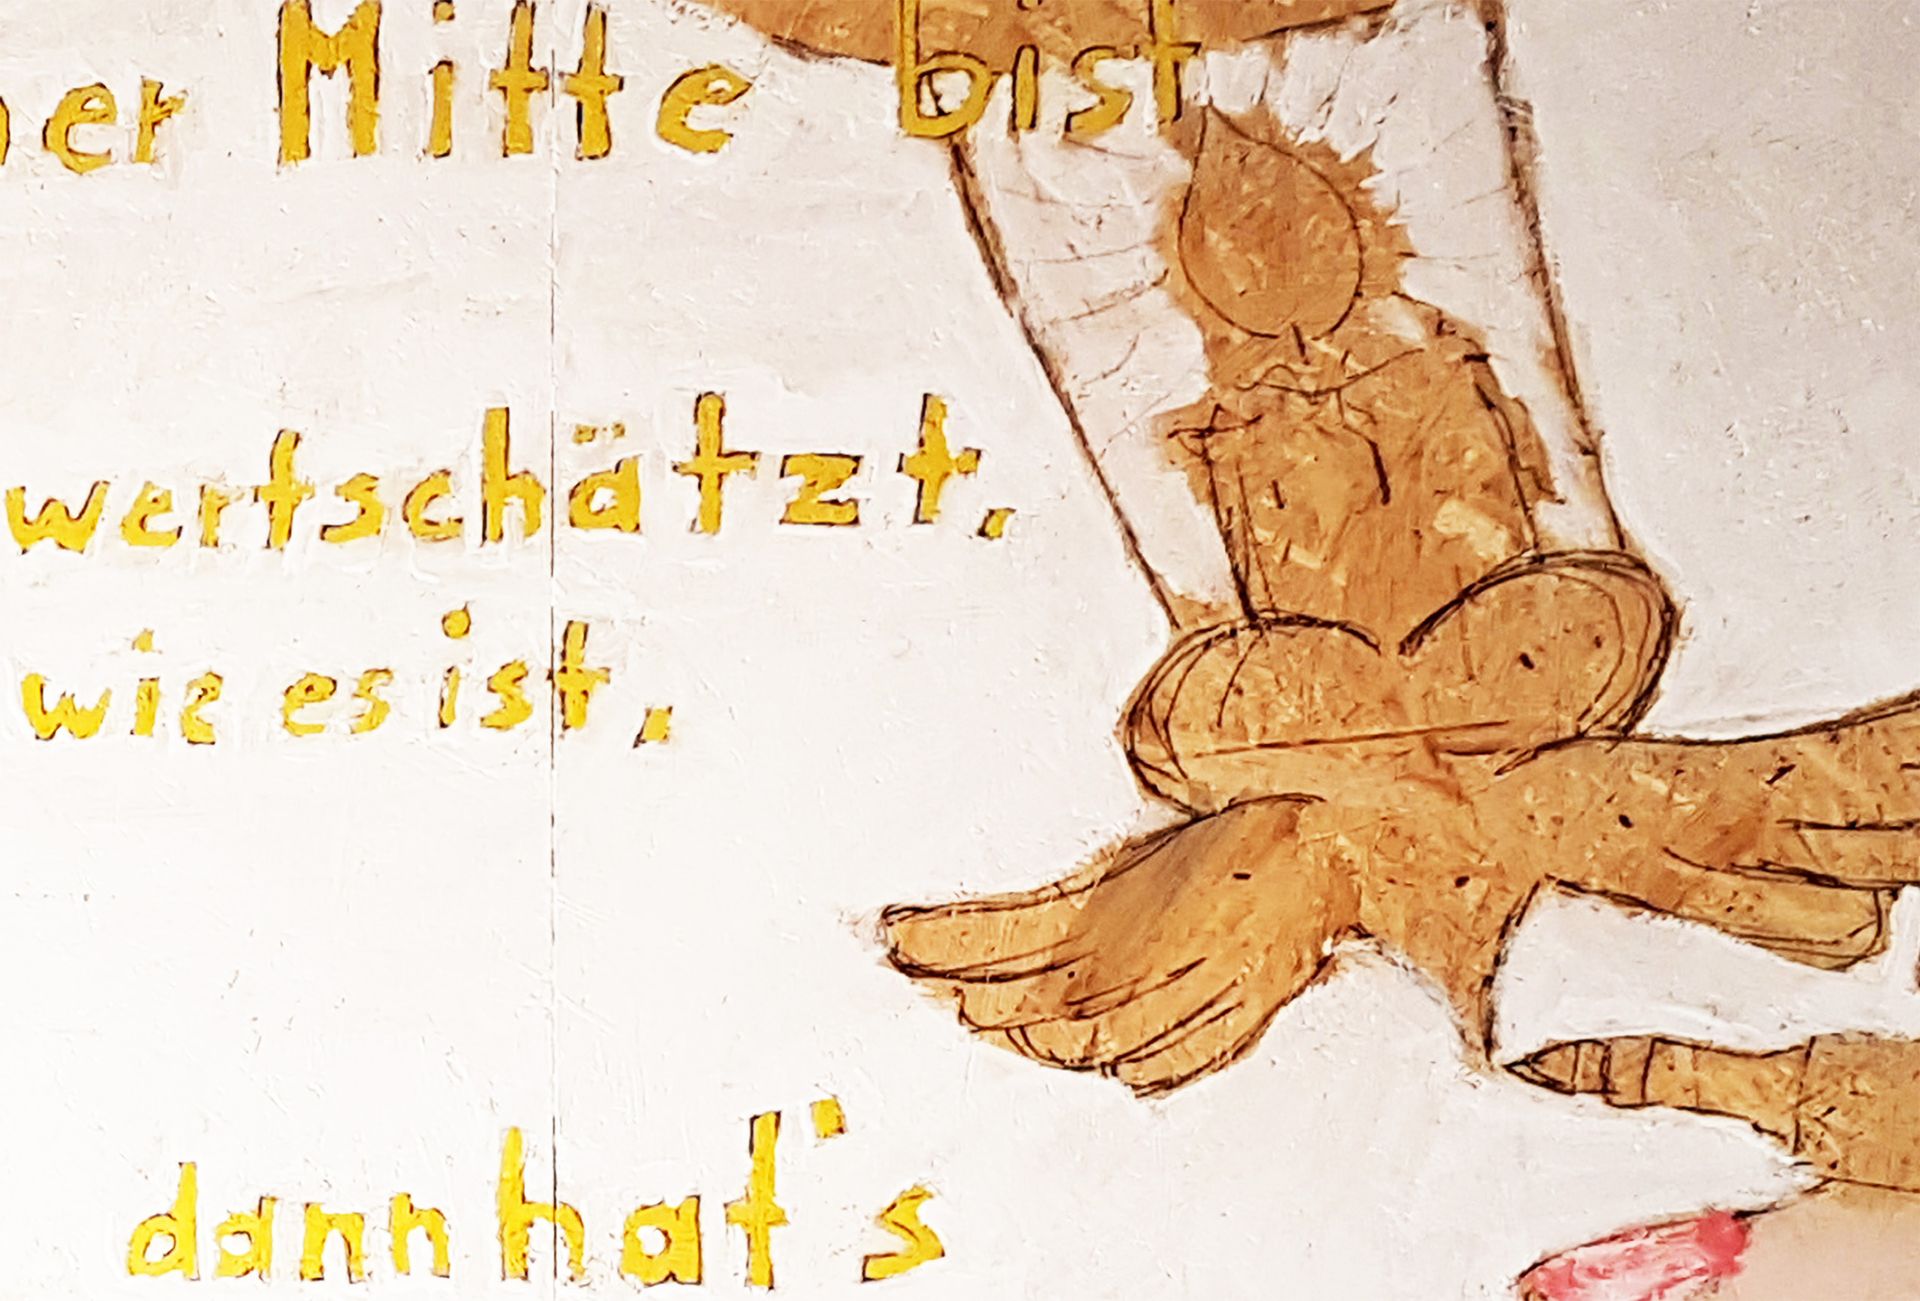 ner Mitte bist
wertschätzt,
wie es ist,
dann hat's